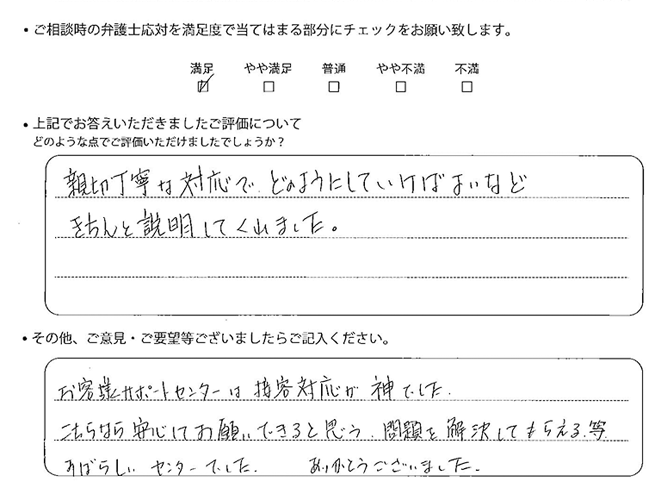 ・ご相談時の弁護士応対を満足度で当てはまる部分にチェックをお願い致します。
満足 やや満足 普通 やや不満 不満
・上記でお答えいただきましたご評価について
どのような点でご評価いただけましたでしょうか？
親切丁寧な対応で、どのようにしていけばよいなど
きちんと説明してくれました。
・その他、ご意見・ご要望等ございましたらご記入ください。
お客様サポートセンターは接客対応が神でした。
こちらなら安心してお願いできると思う、問題を解決してもらえる等
すばらしいセンターでした。 ありがとうございました。